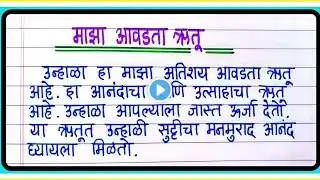 माझा आवडता ऋतू
उन्हाळा हा माझा अतिशय आवडता ऋतू
आहे. हा आनंदाचा णि उत्साहाचा ऋतू
आहे. उन्हाळा आपल्याला जास्त ऊर्जा देतो.
या ऋतूत उन्हाळी सुट्टीचा मनमुराद आनंद
घ्यायला मिळतो.